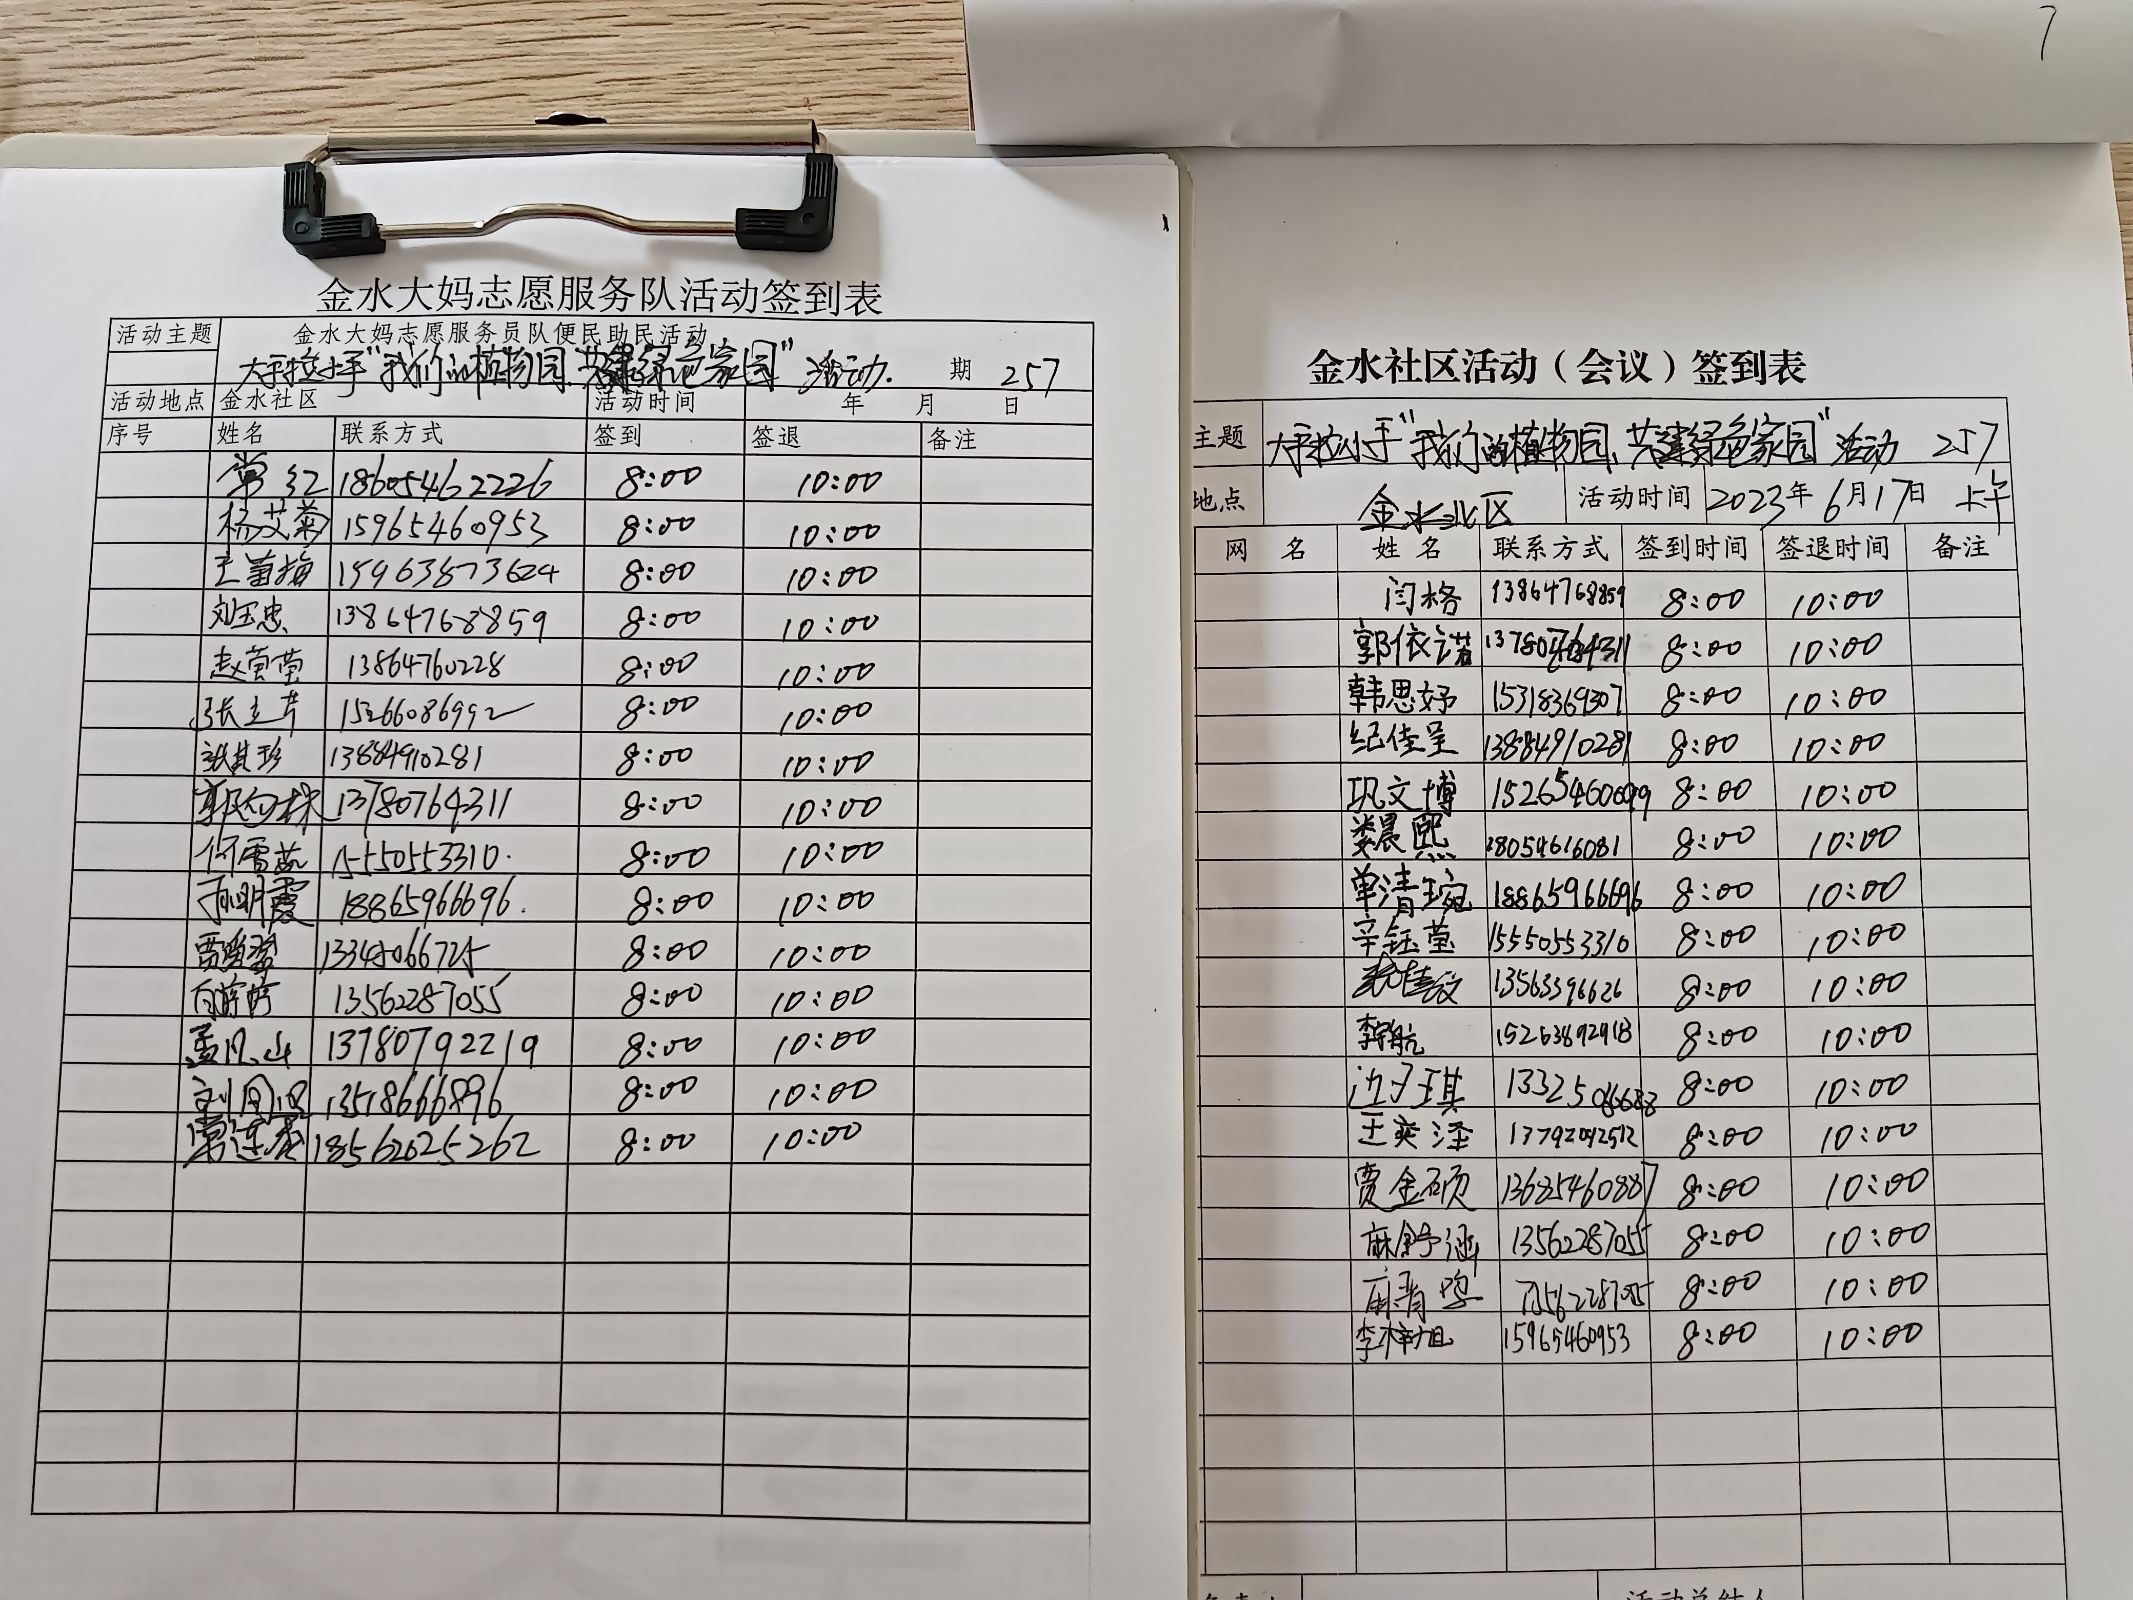 7
1
金水大妈志愿服务队活动签到表
活动主题 金水大妈志愿服务员队便民助民活动
大手拉小手"我们的植物园、共建绿色家园"活动. 期 257
活动地点 金水社区 活动时间 年 月 日
序号 姓名 联系方式 签到 签退 备注
常红 18605462226 8:00 10:00
杨艾菊 15965460953 8:00 10:00
王苗梅 15963873624 8:00 10:00
刘玉忠 13864768859 8:00 10:00
赵萱萱 13864760228 8:00 10:00
张立芹 15266086992 8:00 10:00
张其珍 13884910281 8:00 10:00
13780764311 8:00 10:00
何雪茹 15550553310. 8:00 10:00
孙明霞 18865966696. 8:00 10:00
13345066725 8:00 10:00
13562287055 8:00 10:00
孟凡山 13780792219 8:00 10:00
13518666896 8:00 10:00
18562025262 8:00 10:00
金水社区活动（会议）签到表
主题 大手拉小手"我们的植物园、共建绿色家园"活动 257
地点 金水北区 活动时间 2023年6月17日 上午
网 名 姓 名 联系方式 签到时间 签退时间 备注
闫格 13864768859 8:00 10:00
郭依诺 13780764311 8:00 10:00
韩思妤 15318369307 8:00 10:00
纪佳呈 13884910281 8:00 10:00
巩文博 15265460699 8:00 10:00
娄晨熙 18054616081 8:00 10:00
单清琬 18865966696 8:00 10:00
辛钰莹 15550553310 8:00 10:00
13563396626 8:00 10:00
李航 15263892918 8:00 10:00
边夕琪 13325086688 8:00 10:00
王奕泽 13792092512 8:00 10:00
贾金硕 13685460887 8:00 10:00
麻舒涵 13562287055 8:00 10:00
麻青鸣 13562287055 8:00 10:00
15965460953 8:00 10:00
活动总结人